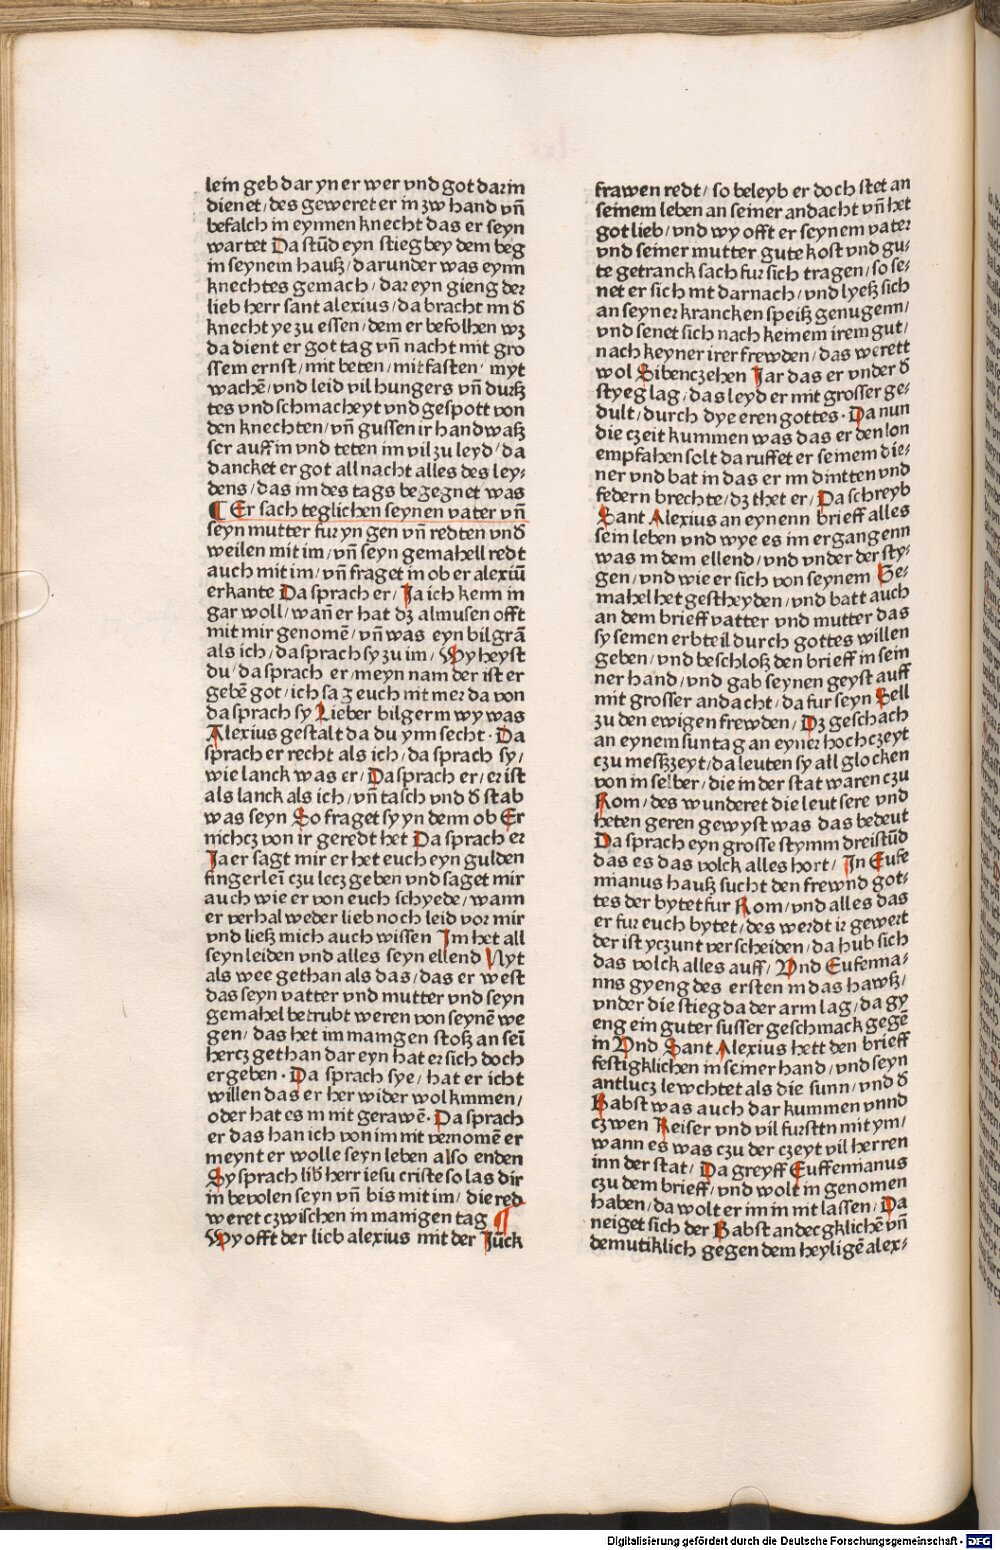 lein geb dar yn er wer vnd got darin
dienet/ des geweret er in zw hand vn̄
befalch in eynnen knecht das er seyn
wartet Da stūd eyn stieg bey dem beg
in seynem hauß/ darunder was eynn
knechtes gemach/ dar eyn gieng der
lieb herr sant alexius/ da bracht im d̄
knecht ye zu essen/ dem er befolhen wz
da dient er got tag vn̄ nacht mit gro
ssem ernst/ mit beten/ mit fasten/ myt
wachē/ vnd leid vil hungers vn̄ durß
tes vnd schmacheyt vnd gespott von
den knechten/ vn̄ gussen ir handwaß
ser auff in vnd teten im vil zu leyd/ da
dancket er got all nacht alles des ley⸗
dens/ das im des tags begegnet was
¶ Er sach teglichen seynen vater vn̄
seyn mutter fur yn gen vn̄ redten vnd̄
weilen mit im/ vn̄ seyn gemahell redt
auch mit im/ vn̄ fraget in ob er alexiū
erkante Da sprach er/ Ja ich kenn in
gar woll/ wan̄ er hat dz almusen offt
mit mir genomē/ vn̄ was eyn bilgrā
als ich/ da sprach sy zu im/ Wy heyst
du/ da sprach er/ meyn nam der ist er
gebē got/ ich sag euch nit mer da von
da sprach sy Lieber bilgerin wy was
Alexius gestalt da du ynn secht. Da
sprach er recht als ich/ da sprach sy/
wie lanck was er/ Da sprach er/ er ist
als lanck als ich/ vn̄ tasch vnd d̄ stab
was seyn So fraget sy yn denn ob Er
nichcz von ir geredt het Da sprach er
Ja er sagt mir er het euch eyn gulden
fingerleī czu lecz geben vnd saget mir
auch wie er von euch schyede/ wann
er verhal weder lieb noch leid vor mir
vnd ließ mich auch wissen Im het all
seyn leiden vnd alles seyn ellend Nyt
als wee gethan als das/ das er west
das seyn vatter vnd mutter vnd seyn
gemahel betrubt weren von seynē we
gen/ das het im manigen stoß an seī
hercz gethan dar eyn hat er sich doch
ergeben. Da sprach sye/ hat er icht
willen das er her wider wol kummen/
oder hat es in nit gerawē. Da sprach
er das han ich von im nit vernomē er
meynt er wolle seyn leben also enden
Sy sprach lib̄ herr iesu criste so las dir
in bevolen seyn vn̄ bis mit im/ die red
weret czwischen in manigen tag ¶
Wy offt der lieb alexius mit der Jūck
frawen redt/ so beleyb er doch stet an
seinem leben an seiner andacht vn̄ het
got lieb/ vnd wy offt er seynem vater
vnd seiner mutter gute kost vnd gu⸗
te getranck sach fur sich tragen/ so se⸗
net er sich nit darnach/ vnd lyeß sich
an seyner krancken speiß genugenn/
vnd senet sich nach keinem irem gut/
nach keyner irer frewden/ das werett
wol Sibenczehen Jar das er vnder d̄
styeg lag/ das leyd er mit grosser ge⸗
dult/ durch dye eren gottes. Da nun
die czeit kummen was das er den lon
empfahen solt da ruffet er seinem die⸗
ner vnd bat in das er im dintten vnd
federn brechte/ dz thet er/ Da schreyb
Sant Alexius an eynenn brieff alles
sein leben vnd wye es im ergangenn
was in dem ellend/ vnd vnder der sty⸗
gen/ vnd wie er sich von seynem Ge⸗
mahel het gestheyden/ vnd batt auch
an dem brieff vatter vnd mutter das
sy seinen erbteil durch gottes willen
geben/ vnd beschloß den brieff in sein
ner hand/ vnd gab seynen geyst auff
mit grosser andacht/ da fur seyn Sell
zu den ewigen frewden/ Dz geschach
an eynem suntag an eyner hochczeyt
czu meßzeyt/ da leuten sy all glocken
von in selber/ die in der stat waren czu
Rom/ des wunderet die leut sere vnd
heten geren gewyst was das bedeut
Da sprach eyn grosse stymm dreistūd
das es das volck alles hort/ In Eufe
mianus hauß sucht den frewnd got⸗
tes der bytet fur Rom/ vnd alles das
er fur euch bytet/ des werdt ir gewert
der ist yczunt verscheiden/ da hub sich
das volck alles auff/ Vnd Eufemia⸗
nns gyeng des ersten in das hawß/
vnder die stieg da der arm lag/ da gy
eng ein guter susser geschmack gegē
in Vnd Sant Alexius hett den brieff
festigklichen in seiner hand/ vnd seyn
antlucz lewchtet als die sunn/ vnd d̄
Babst was auch dar kummen vnnd
czwen Keiser vnd vil furstn mit ym/
wann es was czu der czeyt vil herren
inn der stat/ Da greyff Euffemianus
czu dem brieff/ vnd wolt in genomen
haben/ da wolt er im in nit lassen/ Da
neiget sich der Babst andecgklichē vn̄
demutiklich gegen dem heyligē alex⸗
Digitalisierung gefördert durch die Deutsche Forschungsgemeinschaft - DFG